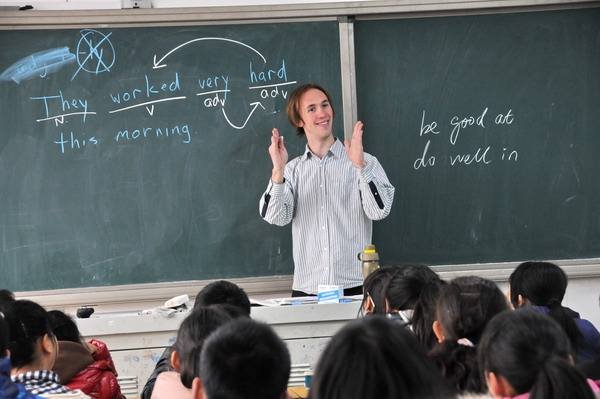 They worked very hard
N V adv adv
this morning.
be good at
do well in